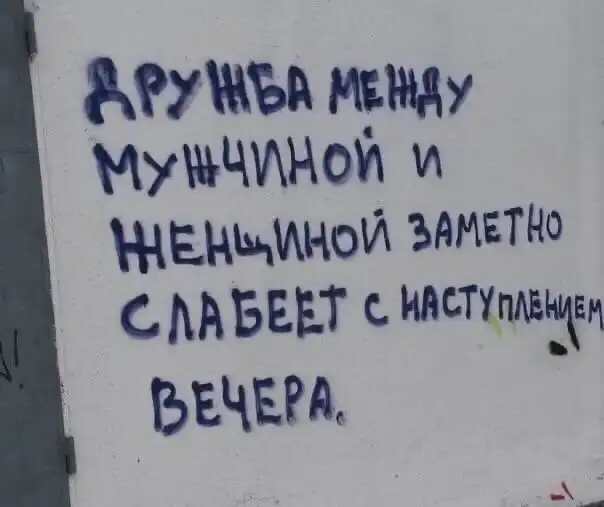 ДРУЖБА МЕЖДУ
МУЖЧИНОЙ И
ЖЕНЩИНОЙ ЗАМЕТНО
СЛАБЕЕТ С НАСТУПЛЕНИЕМ
ВЕЧЕРА.